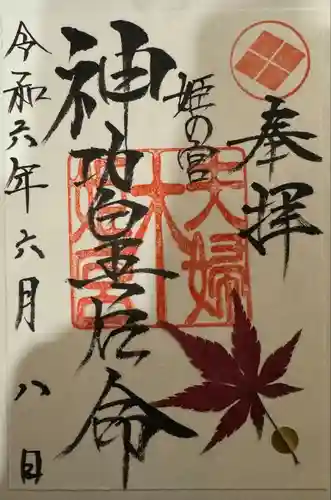 奉拝
姫の宮
神功皇后命
令和六年六月八日
夫婦
木
姫宮